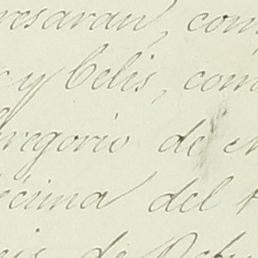 resaran, con
y Celis, com
regorio de e
écima del
de Oct